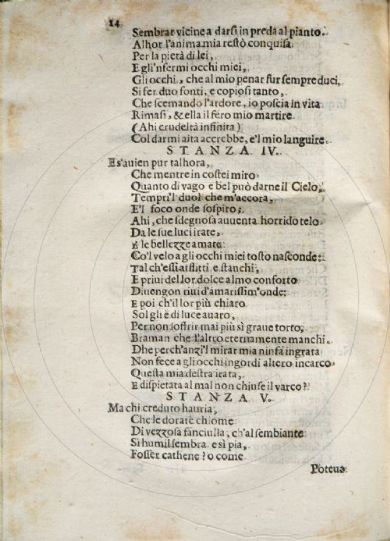 14
Sembrar vicine a darsi in preda al pianto.
Alhor l'anima mia restò conquisa
Per la pietà di lei,
E gl'infermi occhi miei,
Gli occhi, che al mio penar fur sempre duci,
Si fer duo fonti, e copiosi tanto,
Che scemando l'ardore, io poscia in vita
Rimasi, & ella il fero mio martire
(Ahi crudeltà infinita)
Col darmi aita accrebbe, e'l mio languire.
STANZA IV.
E s'auien pur talhora,
Che mentre in costei miro
Quanto di vago e bel può darne il Cielo,
Tempri'l duol che m'accora,
E'l foco onde sospiro;
Ahi, che sdegnosa auuenta horrido telo
Da le sue luci irate,
E le bellezze amate
Co'l velo a gli occhi miei tosto nasconde:
Tal ch'essi afflitti e stanchi,
E priui del lor dolce almo conforto
Diuengon riui d'amarissim'onde:
E poi ch'il lor più chiaro
Sol gli è di luce auaro,
Per non soffrir mai più sì graue torto,
Braman che l'altro eternamente manchi.
Dhe perch'anzi'l mirar mia ninfa ingrata
Non fece a gli occhi ingordi altero incarco
Questa mia destra irata,
E dispietata al mal non chiuse il varco?
STANZA V.
Ma chi creduto hauria,
Che le dorate chiome
Di vezzosa fanciulla, ch'al sembiante
Si humil sembra e sì pia,
Fosser cathene? o come
Poteua